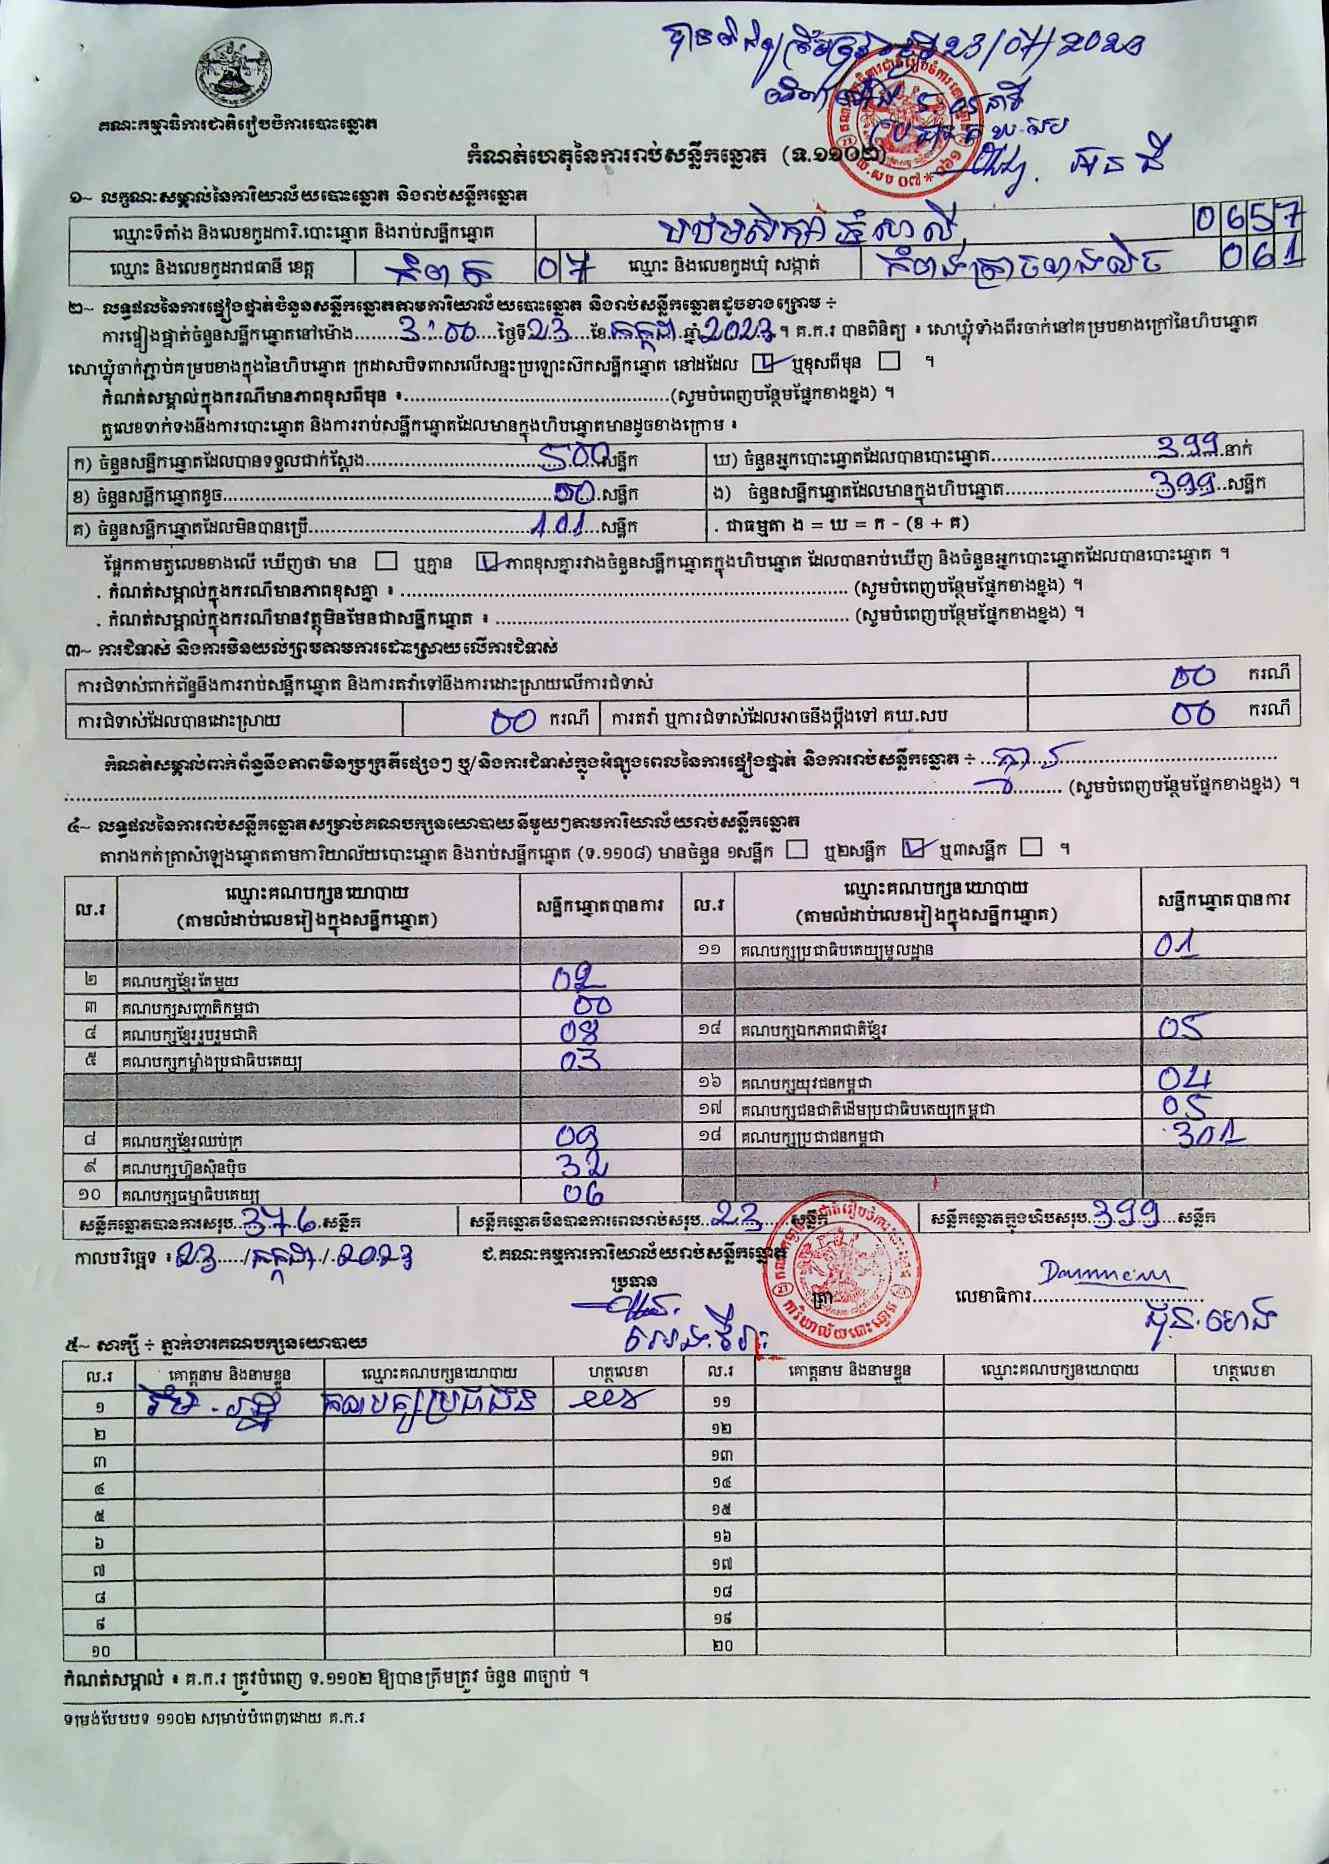 គណៈកម្មាធិការជាតិរៀបចំការបោះឆ្នោត
23/07/2023
កំណត់ហេតុនៃការរាប់សន្លឹកឆ្នោត (ទ.១១០២)
១~ លក្ខណៈសម្គាល់នៃការិយាល័យបោះឆ្នោត និងរាប់សន្លឹកឆ្នោត
ឈ្មោះទីតាំង និងលេខកូដការិ.បោះឆ្នោត និងរាប់សន្លឹកឆ្នោត 0657
ឈ្មោះ និងលេខកូដរាជធានី ខេត្ត កំពត 07 ឈ្មោះ និងលេខកូដឃុំ សង្កាត់ កំពង់ត្រាចខាងលិច 061
២~ លទ្ធផលនៃការផ្ទៀងផ្ទាត់ចំនួនសន្លឹកឆ្នោតតាមការិយាល័យបោះឆ្នោត និងរាប់សន្លឹកឆ្នោតដូចខាងក្រោម ÷
ការផ្ទៀងផ្ទាត់ចំនួនសន្លឹកឆ្នោតនៅម៉ោង 3:00 ថ្ងៃទី 23 ខែ កក្កដា ឆ្នាំ 2023 ។ គ.ក.រ បានពិនិត្យ ៖ សោឃ្លុំទាំងពីរចាក់នៅគម្របខាងក្រៅនៃហិបឆ្នោត
សោឃ្លុំចាក់ភ្ជាប់គម្របខាងក្នុងនៃហិបឆ្នោត ក្រដាសបិទពាសលើសន្ទះប្រឡោះស៊កសន្លឹកឆ្នោត នៅដដែល ☑ ឬខុសពីមុន ☐ ។
កំណត់សម្គាល់ក្នុងករណីមានភាពខុសពីមុន ៖ (សូមបំពេញបន្ថែមផ្នែកខាងខ្នង) ។
តួលេខទាក់ទងនឹងការបោះឆ្នោត និងការរាប់សន្លឹកឆ្នោតដែលមានក្នុងហិបឆ្នោតមានដូចខាងក្រោម ៖
ក) ចំនួនសន្លឹកឆ្នោតដែលបានទទួលជាក់ស្តែង 500 សន្លឹក ឃ) ចំនួនអ្នកបោះឆ្នោតដែលបានបោះឆ្នោត 399 នាក់
ខ) ចំនួនសន្លឹកឆ្នោតខូច 00 សន្លឹក ង) ចំនួនសន្លឹកឆ្នោតដែលមានក្នុងហិបឆ្នោត 399 សន្លឹក
គ) ចំនួនសន្លឹកឆ្នោតដែលមិនបានប្រើ 101 សន្លឹក . ជាធម្មតា ង = ឃ = ក - (ខ + គ)
ផ្អែកតាមតួលេខខាងលើ ឃើញថា មាន ☐ ឬគ្មាន ☑ ភាពខុសគ្នារវាងចំនួនសន្លឹកឆ្នោតក្នុងហិបឆ្នោត ដែលបានរាប់ឃើញ និងចំនួនអ្នកបោះឆ្នោតដែលបានបោះឆ្នោត ។
. កំណត់សម្គាល់ក្នុងករណីមានភាពខុសគ្នា ៖ (សូមបំពេញបន្ថែមផ្នែកខាងខ្នង) ។
. កំណត់សម្គាល់ក្នុងករណីមានវត្ថុមិនមែនជាសន្លឹកឆ្នោត ៖ (សូមបំពេញបន្ថែមផ្នែកខាងខ្នង) ។
៣~ ការជំទាស់ និងការមិនយល់ព្រមតាមការដោះស្រាយលើការជំទាស់
ការជំទាស់ពាក់ព័ន្ធនឹងការរាប់សន្លឹកឆ្នោត និងការតវ៉ាទៅនឹងការដោះស្រាយលើការជំទាស់ 00 ករណី
ការជំទាស់ដែលបានដោះស្រាយ 00 ករណី ការតវ៉ា ឬការជំទាស់ដែលអាចនឹងប្តឹងទៅ គឃ.សប 00 ករណី
កំណត់សម្គាល់ពាក់ព័ន្ធនឹងភាពមិនប្រក្រតីផ្សេងៗ ឬ/និងការជំទាស់ក្នុងអំឡុងពេលនៃការផ្ទៀងផ្ទាត់ និងការរាប់សន្លឹកឆ្នោត ÷ គ្មាន
(សូមបំពេញបន្ថែមផ្នែកខាងខ្នង) ។
៤~ លទ្ធផលនៃការរាប់សន្លឹកឆ្នោតសម្រាប់គណបក្សនយោបាយនីមួយៗតាមការិយាល័យរាប់សន្លឹកឆ្នោត
តារាងកត់ត្រាសំឡេងឆ្នោតតាមការិយាល័យបោះឆ្នោត និងរាប់សន្លឹកឆ្នោត (ទ.១១០៨) មានចំនួន ១សន្លឹក ☐ ឬ២សន្លឹក ☑ ឬ៣សន្លឹក ☐ ។
ល.រ ឈ្មោះគណបក្សនយោបាយ (តាមលំដាប់លេខរៀងក្នុងសន្លឹកឆ្នោត) សន្លឹកឆ្នោតបានការ ល.រ ឈ្មោះគណបក្សនយោបាយ (តាមលំដាប់លេខរៀងក្នុងសន្លឹកឆ្នោត) សន្លឹកឆ្នោតបានការ
១១ គណបក្សប្រជាធិបតេយ្យមូលដ្ឋាន 01
២ គណបក្សខ្មែរតែមួយ 02
៣ គណបក្សសញ្ជាតិកម្ពុជា 00
៤ គណបក្សខ្មែររួបរួមជាតិ 08 ១៤ គណបក្សឯកភាពជាតិខ្មែរ 05
៥ គណបក្សកម្លាំងប្រជាធិបតេយ្យ 03
១៦ គណបក្សយុវជនកម្ពុជា 04
១៧ គណបក្សជនជាតិដើមប្រជាធិបតេយ្យកម្ពុជា 05
៨ គណបក្សខ្មែរឈប់ក្រ 09 ១៨ គណបក្សប្រជាជនកម្ពុជា 301
៩ គណបក្សហ្វ៊ុនស៊ិនប៉ិច 32
១០ គណបក្សធម្មាធិបតេយ្យ 06
សន្លឹកឆ្នោតបានការសរុប 376 សន្លឹក សន្លឹកឆ្នោតមិនបានការពេលរាប់សរុប 23 សន្លឹក សន្លឹកឆ្នោតក្នុងហិបសរុប 399 សន្លឹក
កាលបរិច្ឆេទ ៖ 23 / កក្កដា / 2023 ជ.គណៈកម្មការការិយាល័យរាប់សន្លឹកឆ្នោត
ប្រធាន ត្រា លេខាធិការ
៥~ សាក្សី ÷ ភ្នាក់ងារគណបក្សនយោបាយ
ល.រ គោត្តនាម និងនាមខ្លួន ឈ្មោះគណបក្សនយោបាយ ហត្ថលេខា ល.រ គោត្តនាម និងនាមខ្លួន ឈ្មោះគណបក្សនយោបាយ ហត្ថលេខា
១ គណបក្សប្រជាជន ១១
២ ១២
៣ ១៣
៤ ១៤
៥ ១៥
៦ ១៦
៧ ១៧
៨ ១៨
៩ ១៩
១០ ២០
កំណត់សម្គាល់ ៖ គ.ក.រ ត្រូវបំពេញ ទ.១១០២ ឱ្យបានត្រឹមត្រូវ ចំនួន ៣ច្បាប់ ។
ទម្រង់បែបបទ ១១០២ សម្រាប់បំពេញដោយ គ.ក.រ